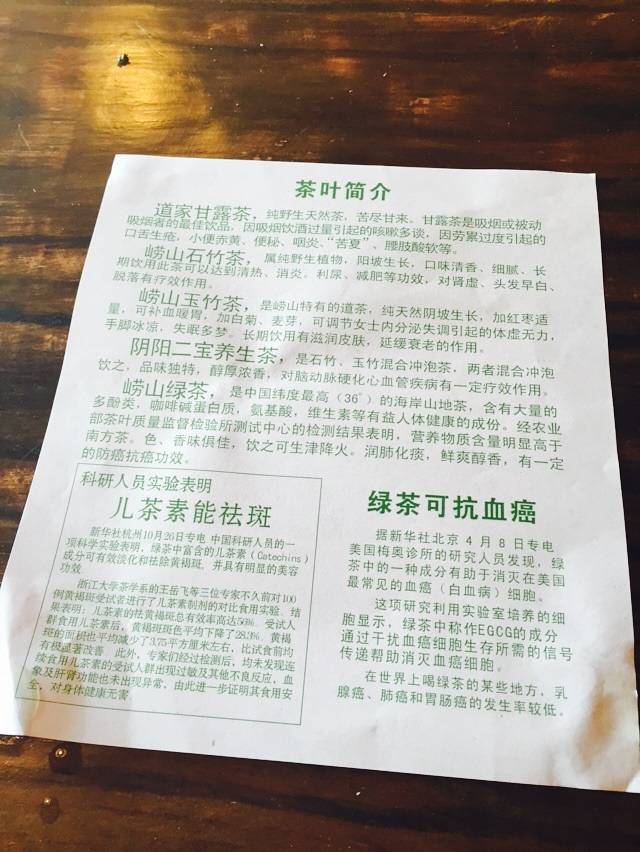 茶叶简介
道家甘露茶，纯野生天然茶，苦尽甘来。甘露茶是吸烟或被动
吸烟者的最佳饮品，因吸烟饮酒过量引起的咳嗽多谈，因劳累过度引起的
口舌生疮，小便赤黄、便秘、咽炎、“苦夏”、腰肢酸软等。
崂山石竹茶，属纯野生植物，阳坡生长，口味清香、细腻、长
期饮用此茶可以达到清热、消炎。利尿、减肥等功效，对肾虚、头发早白、
脱落有疗效作用。
崂山玉竹茶，是崂山特有的道茶，纯天然阴坡生长，加红枣适
量，可补血暖胃，加白菊、麦芽，可调节女士内分泌失调引起的体虚无力，
手脚冰凉，失眠多梦。长期饮用有滋润皮肤，延缓衰老的作用。
阴阳二宝养生茶，是石竹、玉竹混合冲泡茶，两者混合冲泡
饮之，品味独特，醇厚浓香，对脑动脉硬化心血管疾病有一定疗效作用。
崂山绿茶，是中国纬度最高（36°）的海岸山地茶，含有大量的
多酚类，咖啡碱蛋白质，氨基酸，维生素等有益人体健康的成份。经农业
部茶叶质量监督检验所测试中心的检测结果表明，营养物质含量明显高于
南方茶。色、香味俱佳，饮之可生津降火。润肺化痰，鲜爽醇香，有一定
的防癌抗癌功效。
科研人员实验表明
儿茶素能祛斑
新华社杭州10月26日专电 中国科研人员的一
项科学实验表明，绿茶中富含的儿茶素（Catechins）
成分可有效淡化和祛除黄褐斑，并具有明显的美容
功效
浙江大学茶学系的王岳飞等三位专家不久前对100
例黄褐斑受试者进行了儿茶素制剂的对比食用实验，结
果表明：儿茶素的祛黄斑总效率高达56%。受试人
群食用儿茶素后，黄褐斑斑色平均下降了28.3%，黄褐
斑的面积也平均减少了3.75平方厘米左右，比试食前均
有极显著改善 此外，专家们经过检测后，均未发现连
续食用儿茶素的受试人群出现过敏及其他不良反应，血
象及肝肾功能也未出现异常，由此进一步证明其食用安
全，对身体健康无害
绿茶可抗血癌
据新华社北京4月8日专电
美国梅奥诊所的研究人员发现，绿
茶中的一种成分有助于消灭在美国
最常见的血癌（白血病）细胞。
这项研究利用实验室培养的细
胞显示，绿茶中称作EGCG的成分
通过干扰血癌细胞生存所需的信号
传递帮助消灭血癌细胞。
在世界上喝绿茶的某些地方，乳
腺癌、肺癌和胃肠癌的发生率较低。